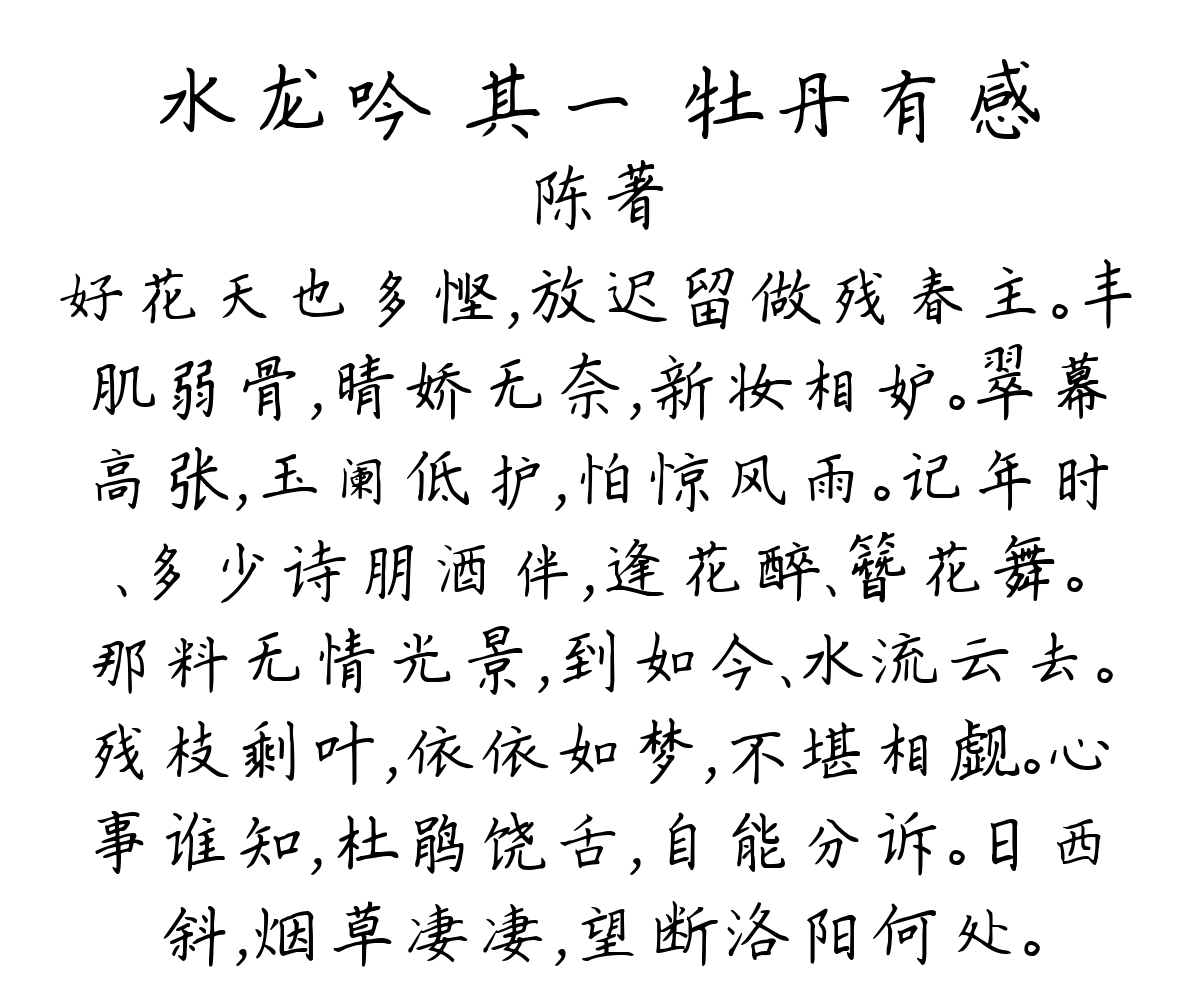 水龙吟 其一 牡丹有感
陈著
好花天也多悭,放迟留做残春主。丰
肌弱骨,晴娇无奈,新妆相妒。翠幕
高张,玉阑低护,怕惊风雨。记年时
、多少诗朋酒伴,逢花醉、簪花舞。
那料无情光景,到如今、水流云去。
残枝剩叶,依依如梦,不堪相觑。心
事谁知,杜鹃饶舌,自能分诉。日西
斜,烟草凄凄,望断洛阳何处。